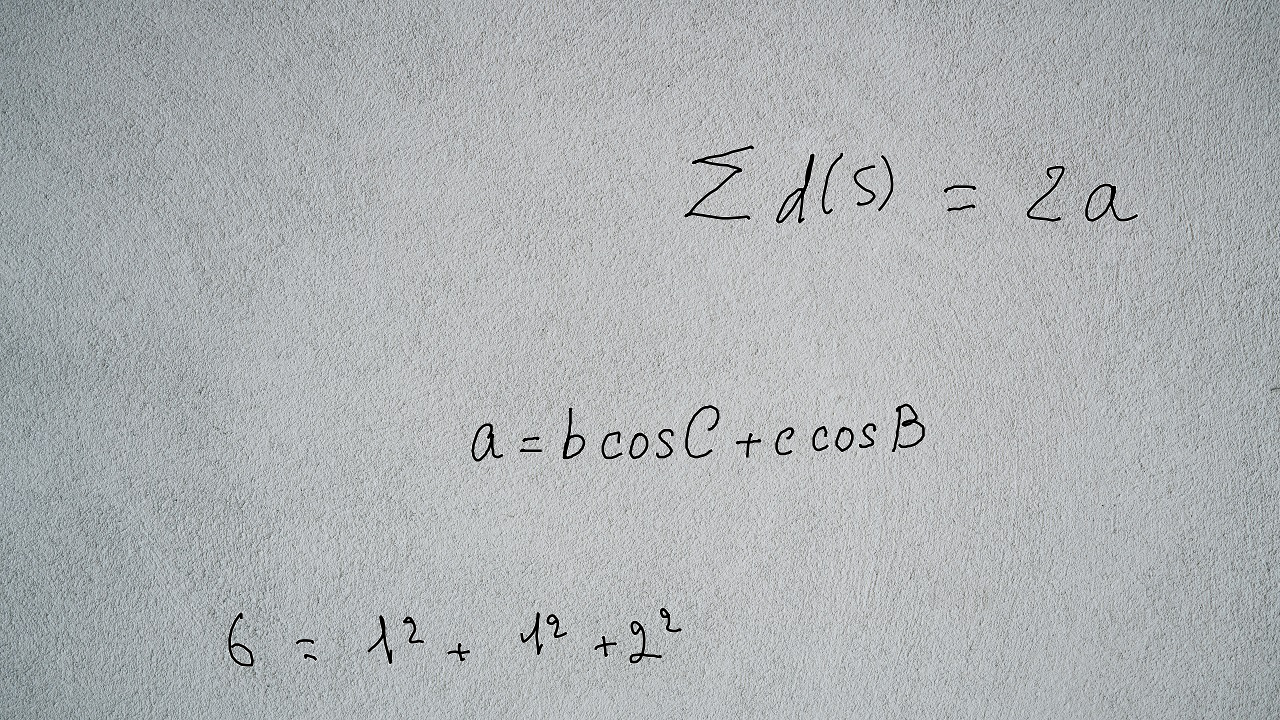 ∑ d(s) = 2a
a = b cos C + c cos B
6 = 1² + 1² + 2²